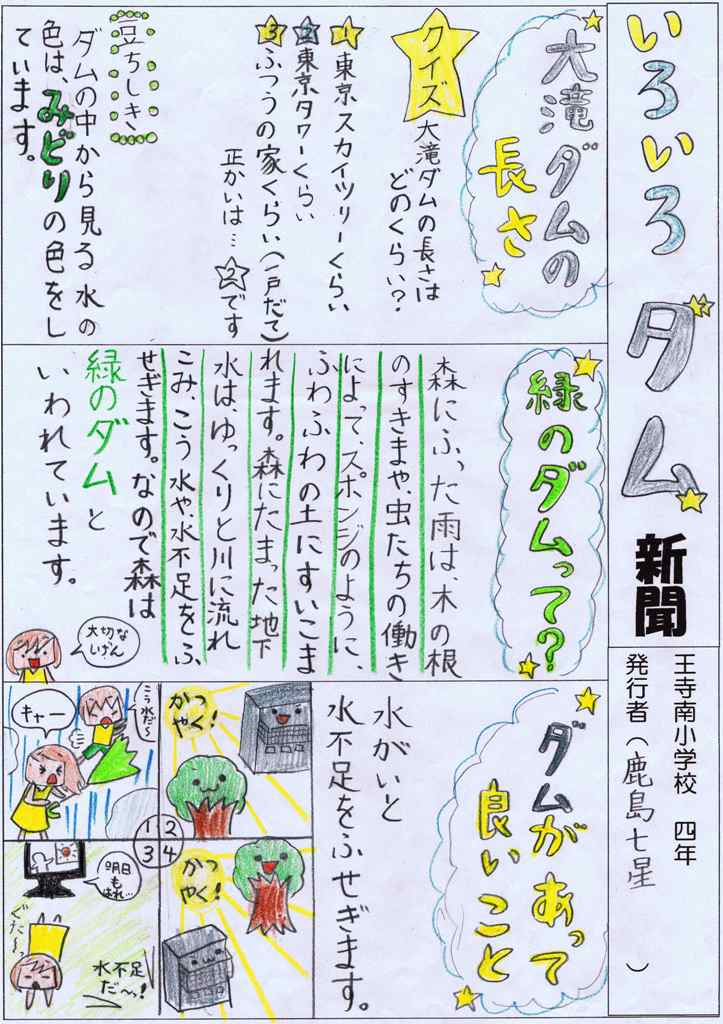 いろいろダム新聞
王寺南小学校 四年
発行者（鹿島七星 ）
大滝ダムの
長さ
クイズ
大滝ダムの長さは
どのくらい?
1 東京スカイツリーくらい
2 東京タワーくらい
3 ふつうの家くらい(一戸だて)
正かいは…2です
豆ちしき
ダムの中から見る水の
色は、みどりの色をし
ています。
緑のダムって?
森にふった雨は、木の根
のすきまや、虫たちの働き
によって、スポンジのように、
ふわふわの土にすいこま
れます。森にたまった地下
水は、ゆっくりと川に流れ
こみ、こう水や、水不足をふ
せぎます。なので森は
緑のダムと
いわれています。
大切な
しげん
ダムがあって
良いこと
水がいと
水不足をふせぎます。
1
こう水だ〜
キャー
2
かつ
やく!
3
明日
も
はれ…
ぐた〜っ
水不足
だ〜っ!
4
かつ
やく!